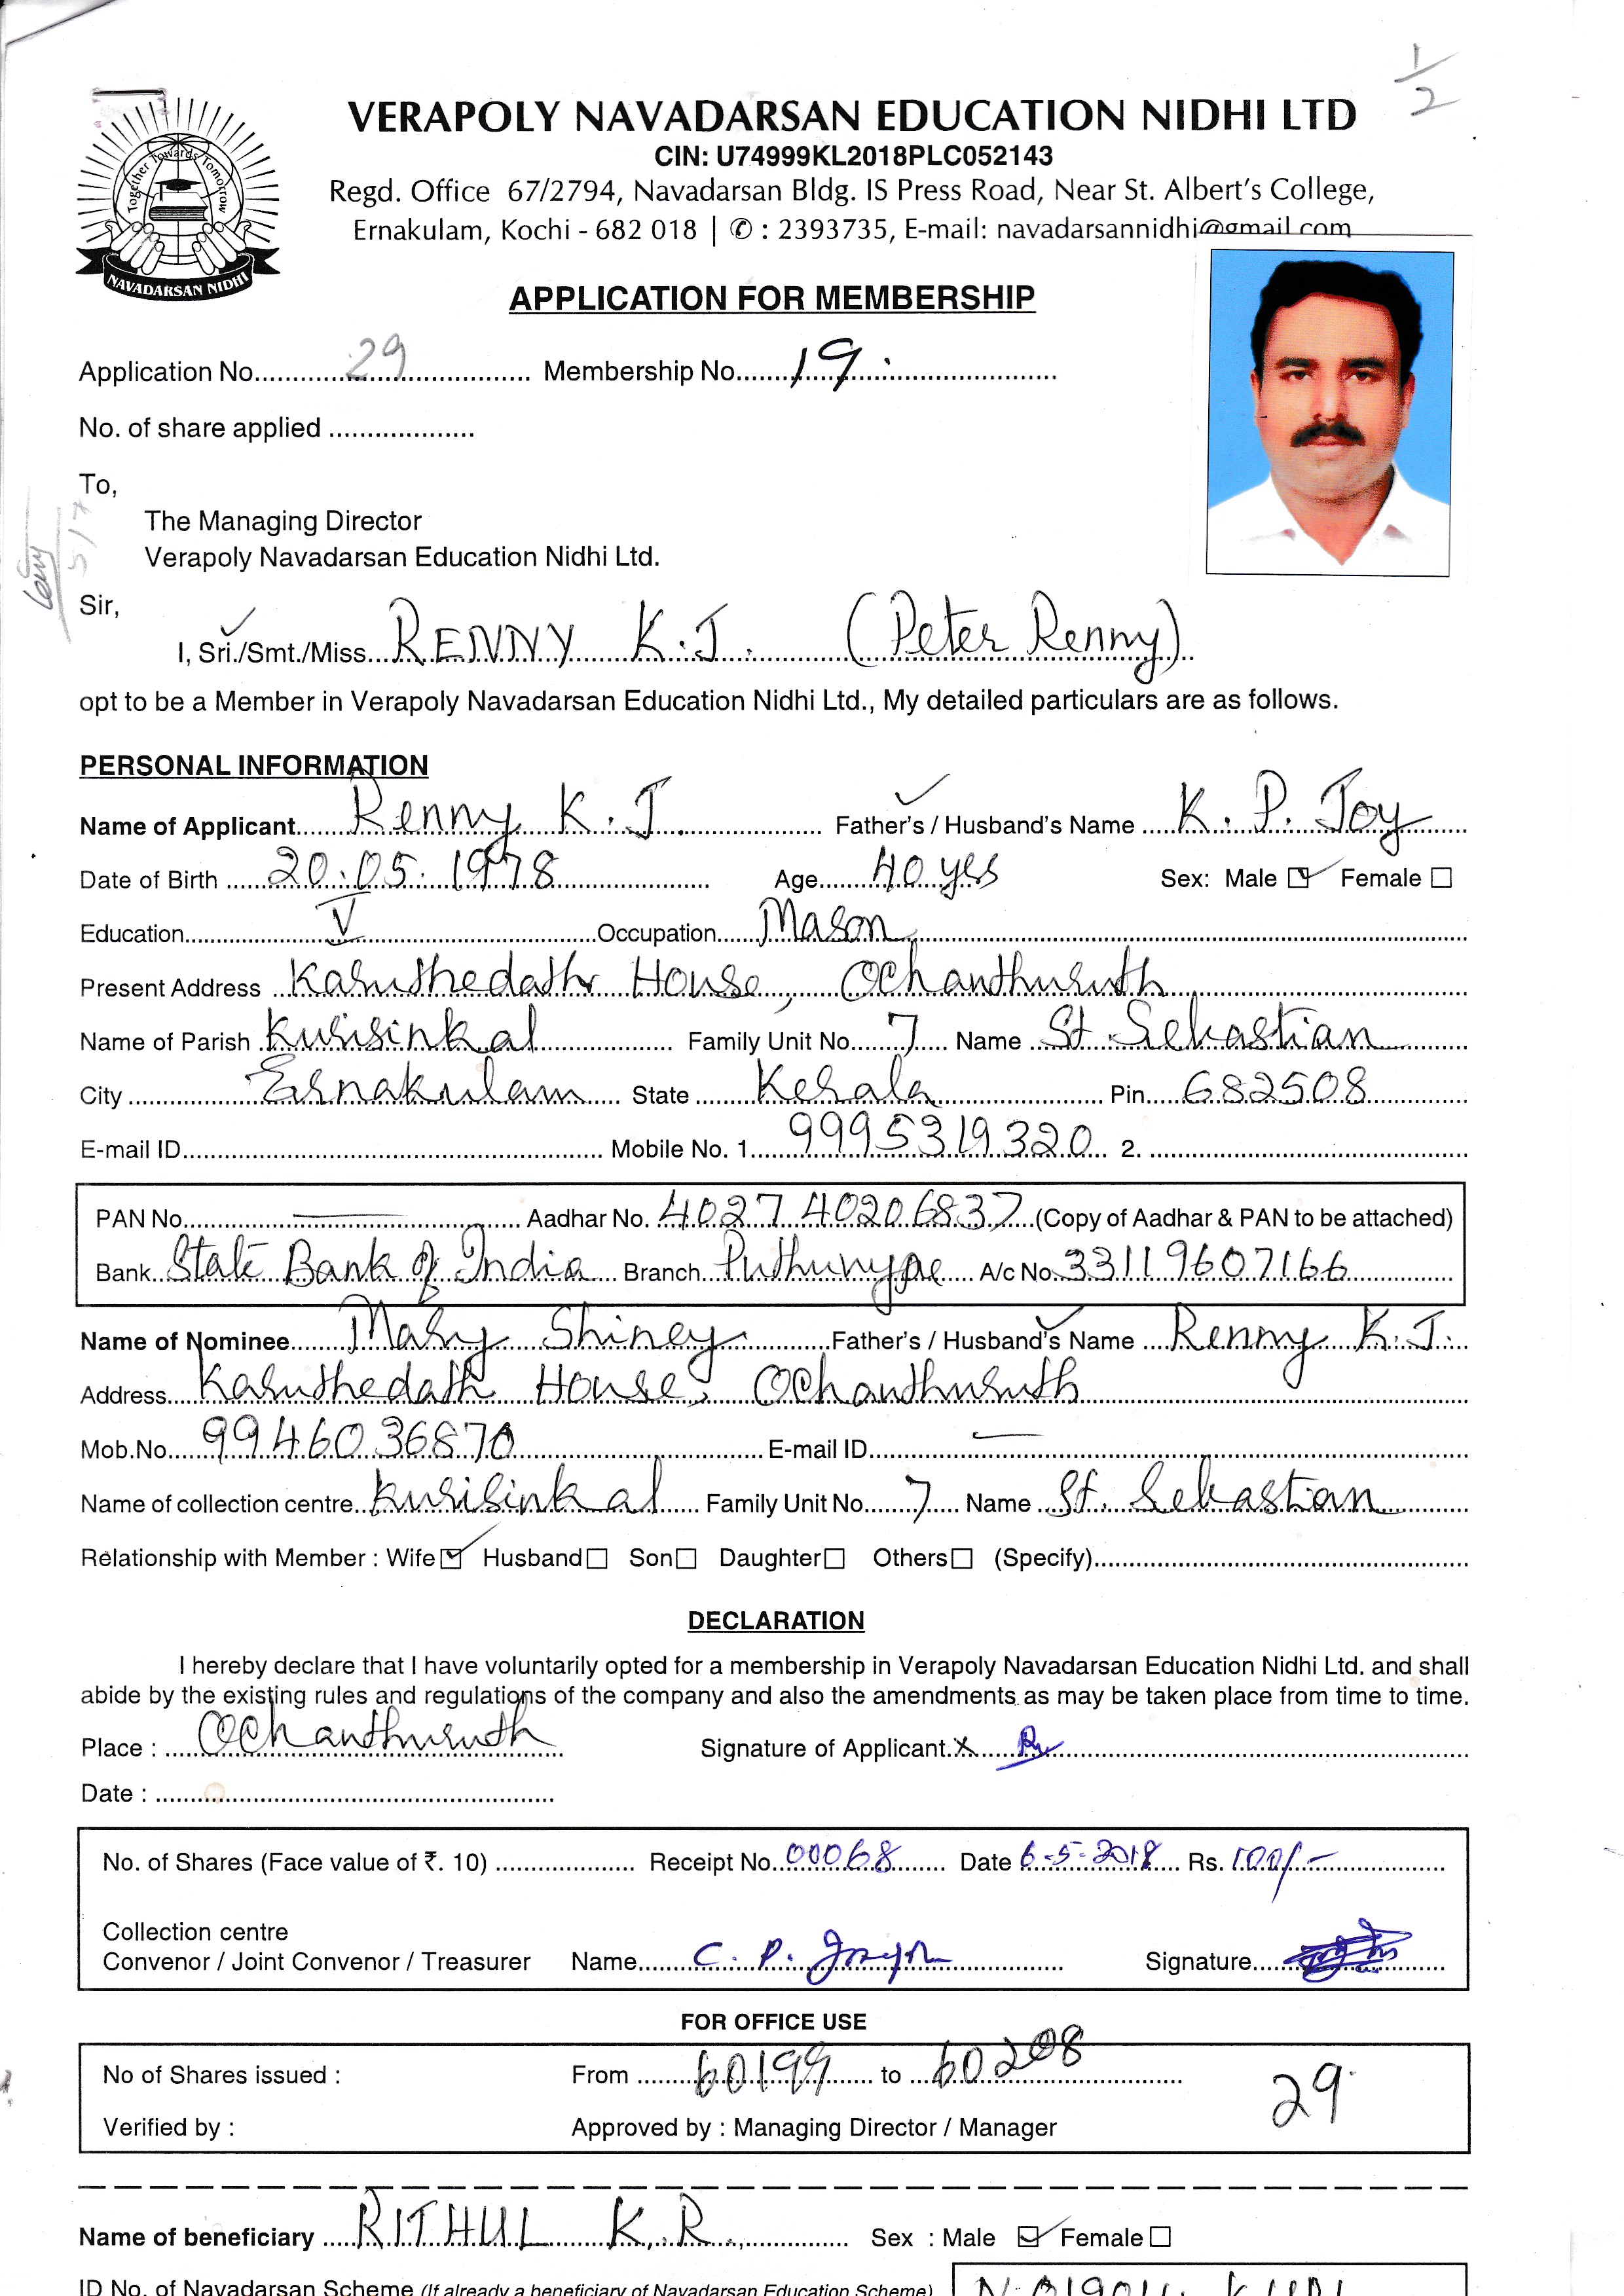 1/2
VERAPOLY NAVADARSAN EDUCATION NIDHI LTD
CIN: U74999KL2018PLC052143
Regd. Office 67/2794, Navadarsan Bldg. IS Press Road, Near St. Albert's College,
Ernakulam, Kochi - 682 018 | ✆ : 2393735, E-mail: navadarsannidhi@gmail.com
Together Towards Tomorrow
NAVADARSAN NIDHI
APPLICATION FOR MEMBERSHIP
Application No. 29 Membership No. 19.
No. of share applied
To,
The Managing Director
Verapoly Navadarsan Education Nidhi Ltd.
5/7
Sir,
I, Sri./Smt./Miss RENNY K.J. (Peter Renny)
opt to be a Member in Verapoly Navadarsan Education Nidhi Ltd., My detailed particulars are as follows.
PERSONAL INFORMATION
Name of Applicant Renny K.J. Father's / Husband's Name K. P. Joy
Date of Birth 20.05.1978 Age 40 yrs Sex: Male ☑ Female ☐
Education V Occupation Mason
Present Address Karuthedath House, Ochanthuruth
Name of Parish Kurisinkal Family Unit No. 7 Name St. Sebastian
City Ernakulam State Kerala Pin 682508
E-mail ID Mobile No. 1 9995319320 2.
PAN No. — Aadhar No. 4027 4020 6837 (Copy of Aadhar & PAN to be attached)
Bank State Bank of India Branch Puthuvype A/c No. 33119607166
Name of Nominee Mary Shiney Father's / Husband's Name Renny K.J.
Address Karuthedath House, Ochanthuruth
Mob.No. 9946036870 E-mail ID —
Name of collection centre Kurisinkal Family Unit No. 7 Name St. Sebastian
Relationship with Member : Wife ☑ Husband ☐ Son ☐ Daughter ☐ Others ☐ (Specify)
DECLARATION
I hereby declare that I have voluntarily opted for a membership in Verapoly Navadarsan Education Nidhi Ltd. and shall
abide by the existing rules and regulations of the company and also the amendments as may be taken place from time to time.
Place : Ochanthuruth Signature of Applicant x
Date :
No. of Shares (Face value of ₹. 10) Receipt No. 00068 Date 6-5-2018 Rs. 100/-
Collection centre
Convenor / Joint Convenor / Treasurer Name C. P. Joseph Signature
FOR OFFICE USE
No of Shares issued : From 60199 to 60208 29.
Verified by : Approved by : Managing Director / Manager
Name of beneficiary RITHUL K.R. Sex : Male ☑ Female ☐
ID No. of Navadarsan Scheme (If already a beneficiary of Navadarsan Education Scheme)